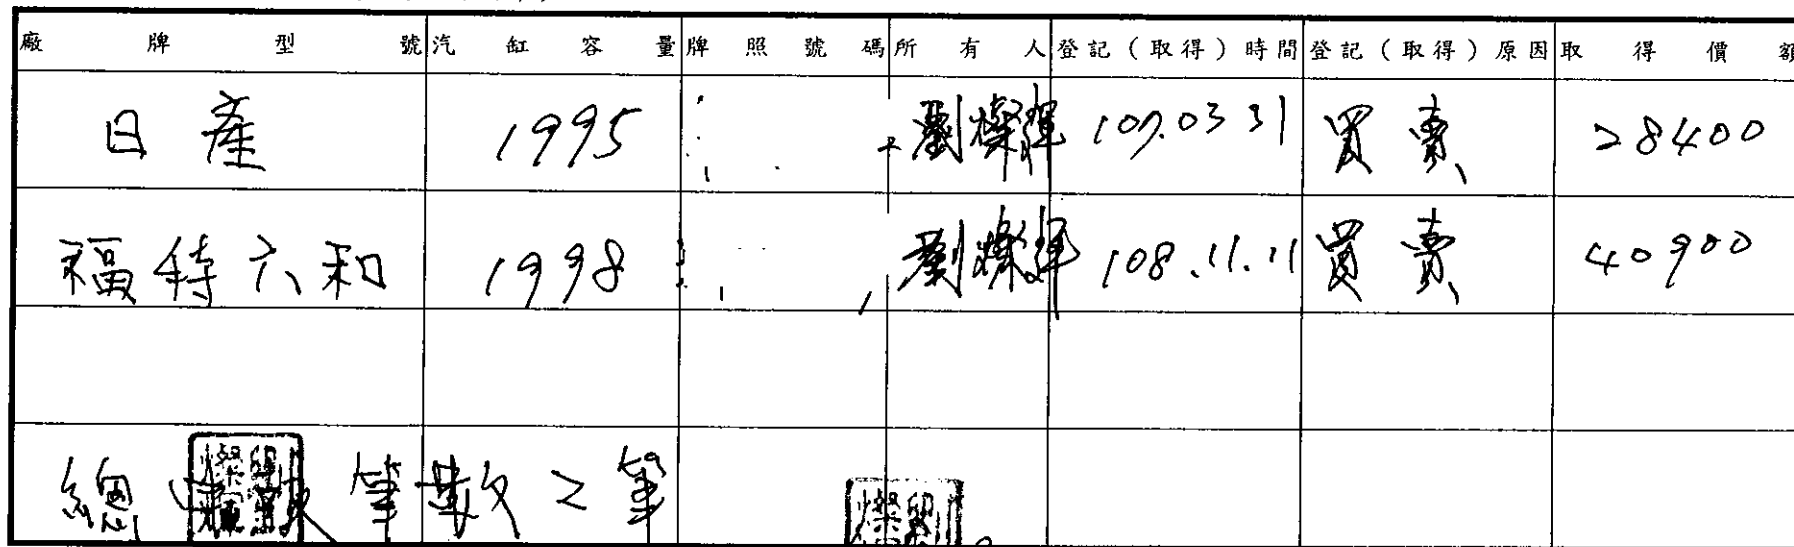 廠牌型號 汽缸容量 牌照號碼 所有人 登記(取得)時間 登記(取得)原因 取得價額
日產 1995 劉燦輝 109.03 31 買賣 28400
福特六和 1998 劉燦輝 108.11.11 買賣 40900
總 筆數2筆